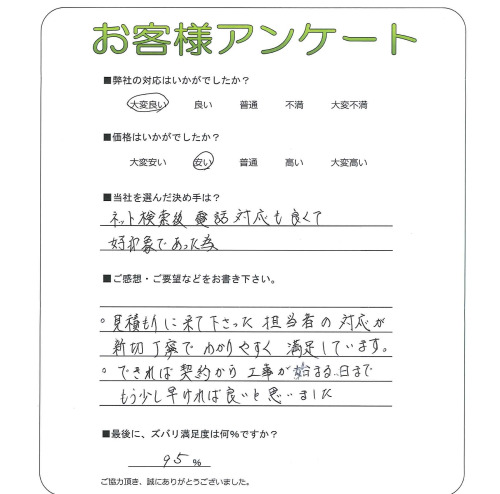 お客様アンケート
■弊社の対応はいかがでしたか？
大変良い 良い 普通 不満 大変不満
■価格はいかがでしたか？
大変安い 安い 普通 高い 大変高い
■当社を選んだ決め手は？
ネット検索後 電話対応も良くて
好印象であった為
■ご感想・ご要望などをお書き下さい。
。見積もりに来て下さった 担当者の 対応が
新切丁寧で わかりやすく 満足しています。
。できれば 契約から 工事が 始まる 日まで
もう少し早ければ良いと思いました
■最後に、ズバリ満足度は何%ですか？
95 %
ご協力頂き、誠にありがとうございました。